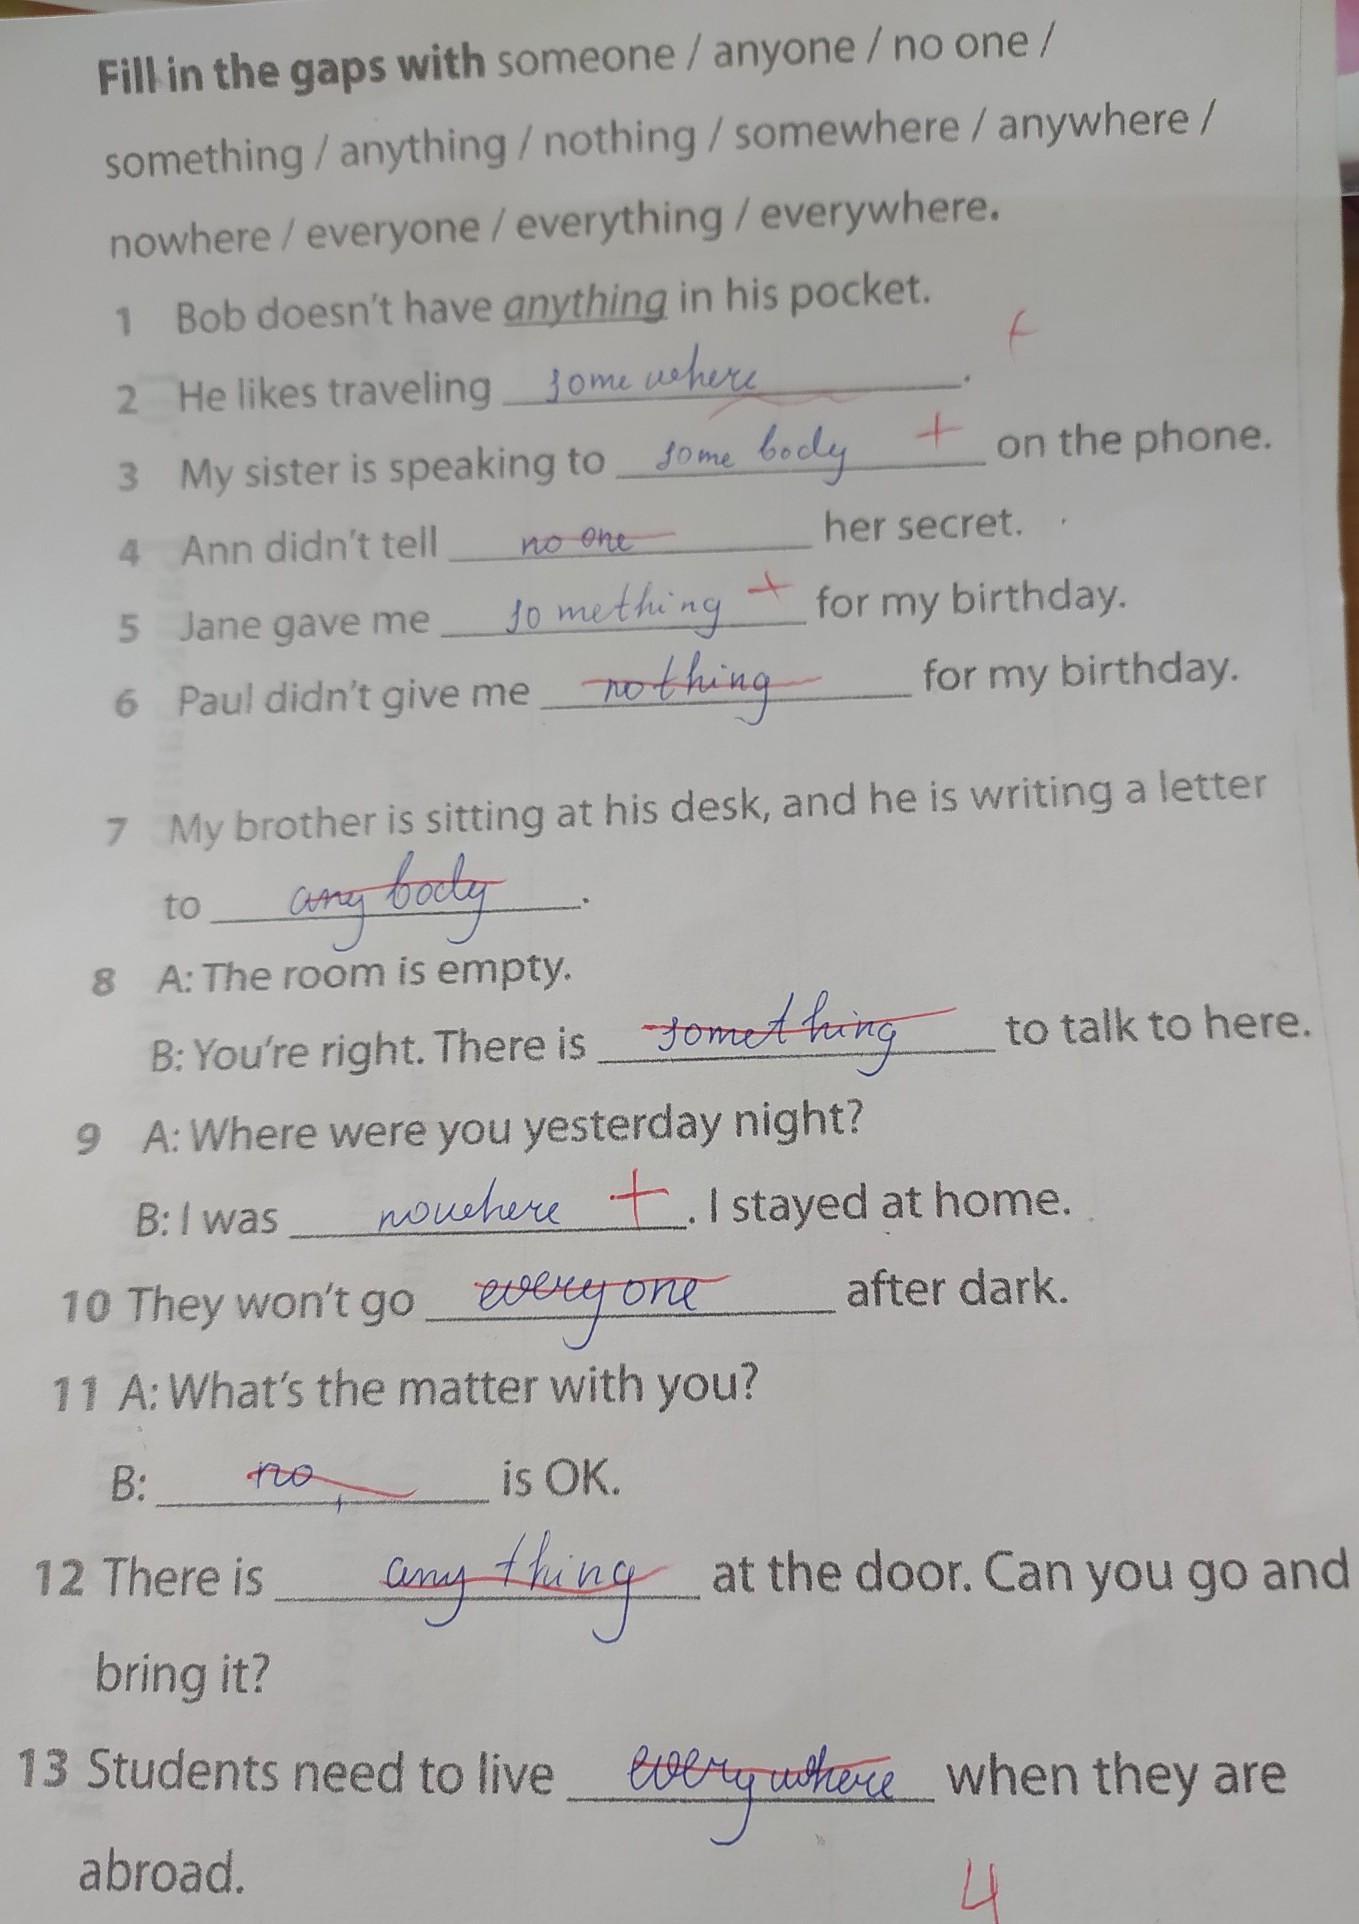 Fill in the gaps with someone / anyone / no one /
something / anything / nothing / somewhere / anywhere /
nowhere / everyone / everything / everywhere.
1 Bob doesn't have anything in his pocket.
2 He likes traveling some where.
3 My sister is speaking to some body + on the phone.
4 Ann didn't tell no one her secret.
5 Jane gave me something + for my birthday.
6 Paul didn't give me nothing for my birthday.
7 My brother is sitting at his desk, and he is writing a letter
to any body.
8 A: The room is empty.
B: You're right. There is something to talk to here.
9 A: Where were you yesterday night?
B: I was nowhere +. I stayed at home.
10 They won't go every one after dark.
11 A: What's the matter with you?
B: no is OK.
12 There is any thing at the door. Can you go and
bring it?
13 Students need to live every where when they are
abroad.
4